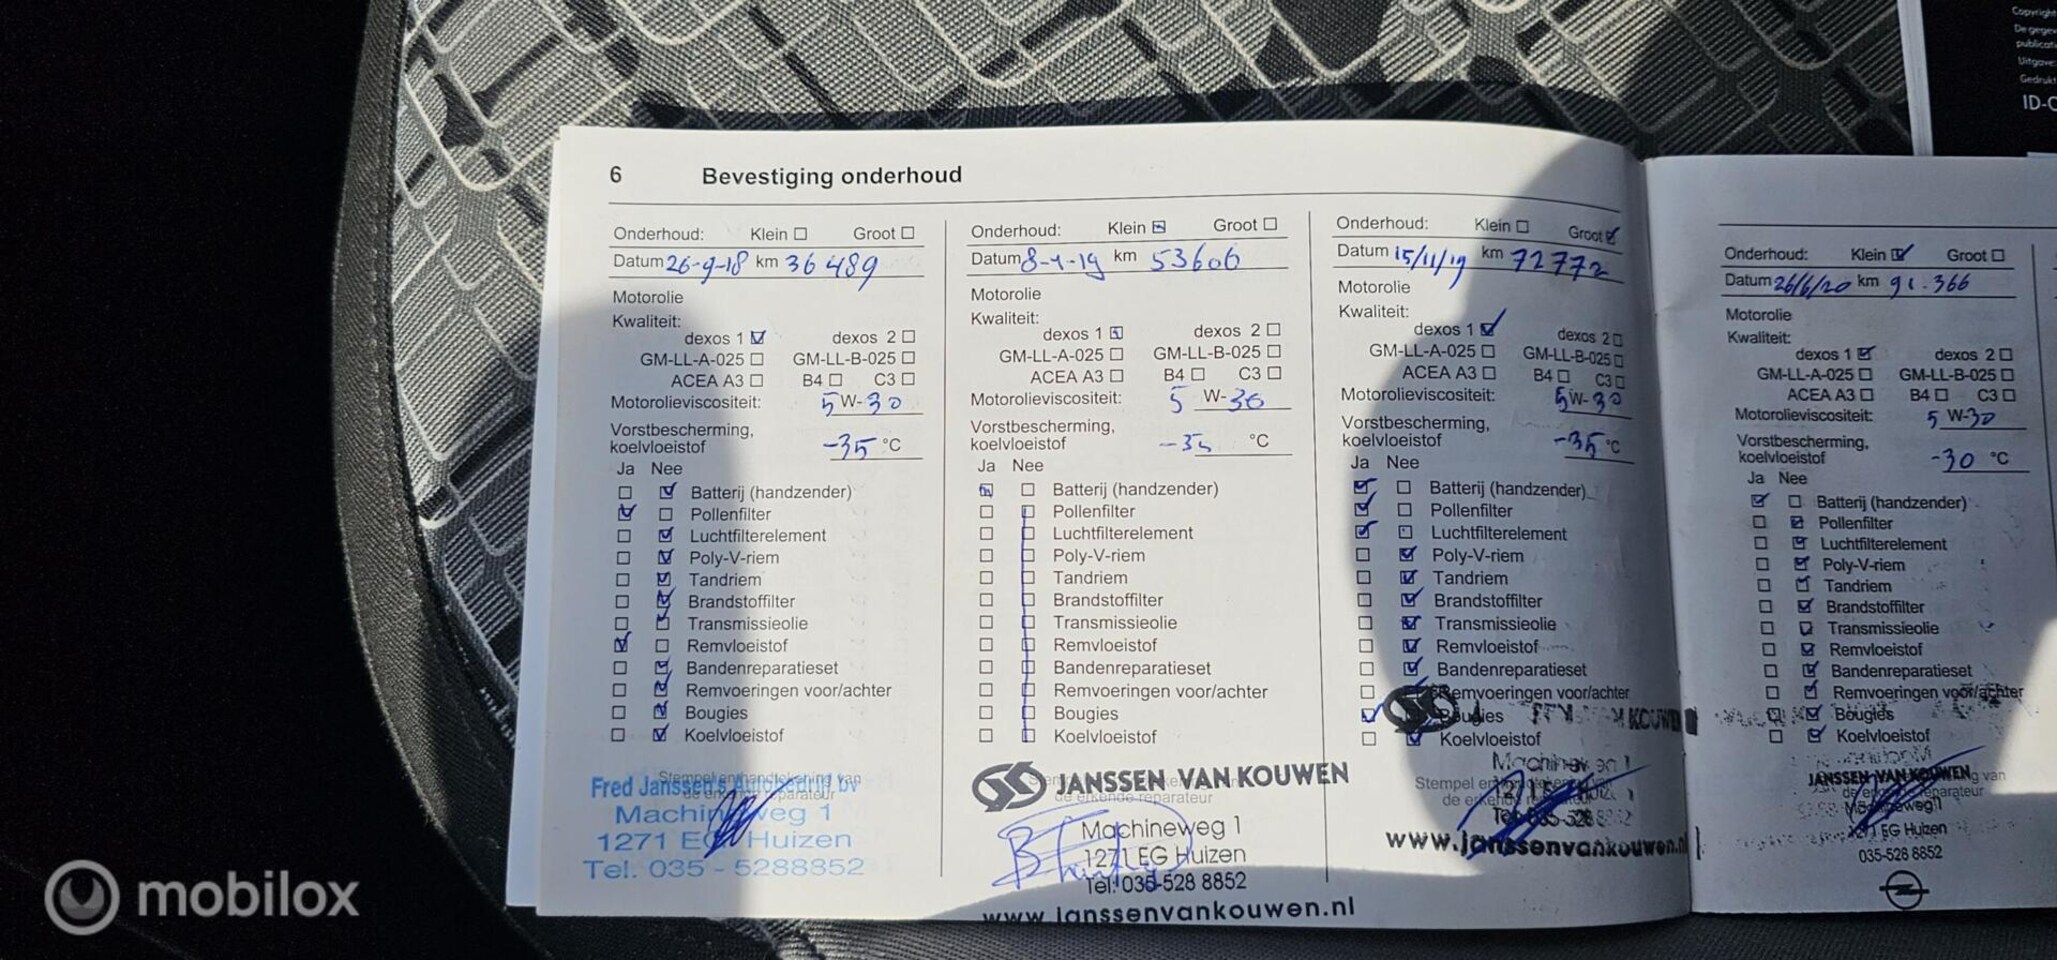 Copyright
publicat
Uitgave:
Gedrukt
ID-O
6 Bevestiging onderhoud
Onderhoud: Klein ☐ Groot ☐
Datum 26-9-18 km 36489
Motorolie
Kwaliteit:
dexos 1 ☑ dexos 2 ☐
GM-LL-A-025 ☐ GM-LL-B-025 ☐
ACEA A3 ☐ B4 ☐ C3 ☐
Motorolieviscositeit: 5 W-30
Vorstbescherming,
koelvloeistof -35 °C
Ja Nee
☐ ☑ Batterij (handzender)
☑ ☐ Pollenfilter
☐ ☑ Luchtfilterelement
☐ ☑ Poly-V-riem
☐ ☑ Tandriem
☐ ☑ Brandstoffilter
☐ ☑ Transmissieolie
☑ ☐ Remvloeistof
☐ ☑ Bandenreparatieset
☐ ☑ Remvoeringen voor/achter
☐ ☑ Bougies
☐ ☑ Koelvloeistof
Stempel en handtekening van
de erkende reparateur
Fred Janssen's Autobedrijf bv
Machineweg 1
1271 EG Huizen
Tel. 035 - 5288852
Onderhoud: Klein ☑ Groot ☐
Datum 8-4-19 km 53606
Motorolie
Kwaliteit:
dexos 1 ☑ dexos 2 ☐
GM-LL-A-025 ☐ GM-LL-B-025 ☐
ACEA A3 ☐ B4 ☐ C3 ☐
Motorolieviscositeit: 5 W-30
Vorstbescherming,
koelvloeistof -35 °C
Ja Nee
☑ ☐ Batterij (handzender)
☐ ☐ Pollenfilter
☐ ☐ Luchtfilterelement
☐ ☐ Poly-V-riem
☐ ☐ Tandriem
☐ ☐ Brandstoffilter
☐ ☐ Transmissieolie
☐ ☐ Remvloeistof
☐ ☐ Bandenreparatieset
☐ ☐ Remvoeringen voor/achter
☐ ☐ Bougies
☐ ☐ Koelvloeistof
JANSSEN VAN KOUWEN
de erkende reparateur
Machineweg 1
1271 EG Huizen
Tel: 035-528 8852
www.janssenvankouwen.nl
Onderhoud: Klein ☐ Groot ☑
Datum 15/11/19 km 72772
Motorolie
Kwaliteit:
dexos 1 ☑ dexos 2 ☐
GM-LL-A-025 ☐ GM-LL-B-025 ☐
ACEA A3 ☐ B4 ☐ C3 ☐
Motorolieviscositeit: 5 W-30
Vorstbescherming,
koelvloeistof -35 °C
Ja Nee
☑ ☐ Batterij (handzender)
☑ ☐ Pollenfilter
☑ ☐ Luchtfilterelement
☐ ☑ Poly-V-riem
☐ ☑ Tandriem
☐ ☑ Brandstoffilter
☐ ☑ Transmissieolie
☐ ☑ Remvloeistof
☐ ☑ Bandenreparatieset
☐ ☑ Remvoeringen voor/achter
☑ ☐ Bougies
KOUWEN
☐ ☑ Koelvloeistof
Stempel en
de erkende
www.janssenvankouwen.nl
Onderhoud: Klein ☑ Groot ☐
Datum 26/6/20 km 91.366
Motorolie
Kwaliteit:
dexos 1 ☑ dexos 2 ☐
GM-LL-A-025 ☐ GM-LL-B-025 ☐
ACEA A3 ☐ B4 ☐ C3 ☐
Motorolieviscositeit: 5 W-30
Vorstbescherming,
koelvloeistof -30 °C
Ja Nee
☑ ☐ Batterij (handzender)
☐ ☑ Pollenfilter
☐ ☑ Luchtfilterelement
☐ ☑ Poly-V-riem
☐ ☑ Tandriem
☐ ☑ Brandstoffilter
☐ ☑ Transmissieolie
☐ ☑ Remvloeistof
☐ ☑ Bandenreparatieset
☐ ☑ Remvoeringen voor/achter
☐ ☑ Bougies
☐ ☑ Koelvloeistof
JANSSEN VAN KOUWEN
Machineweg 1
1271 EG Huizen
035-528 8852
mobilox